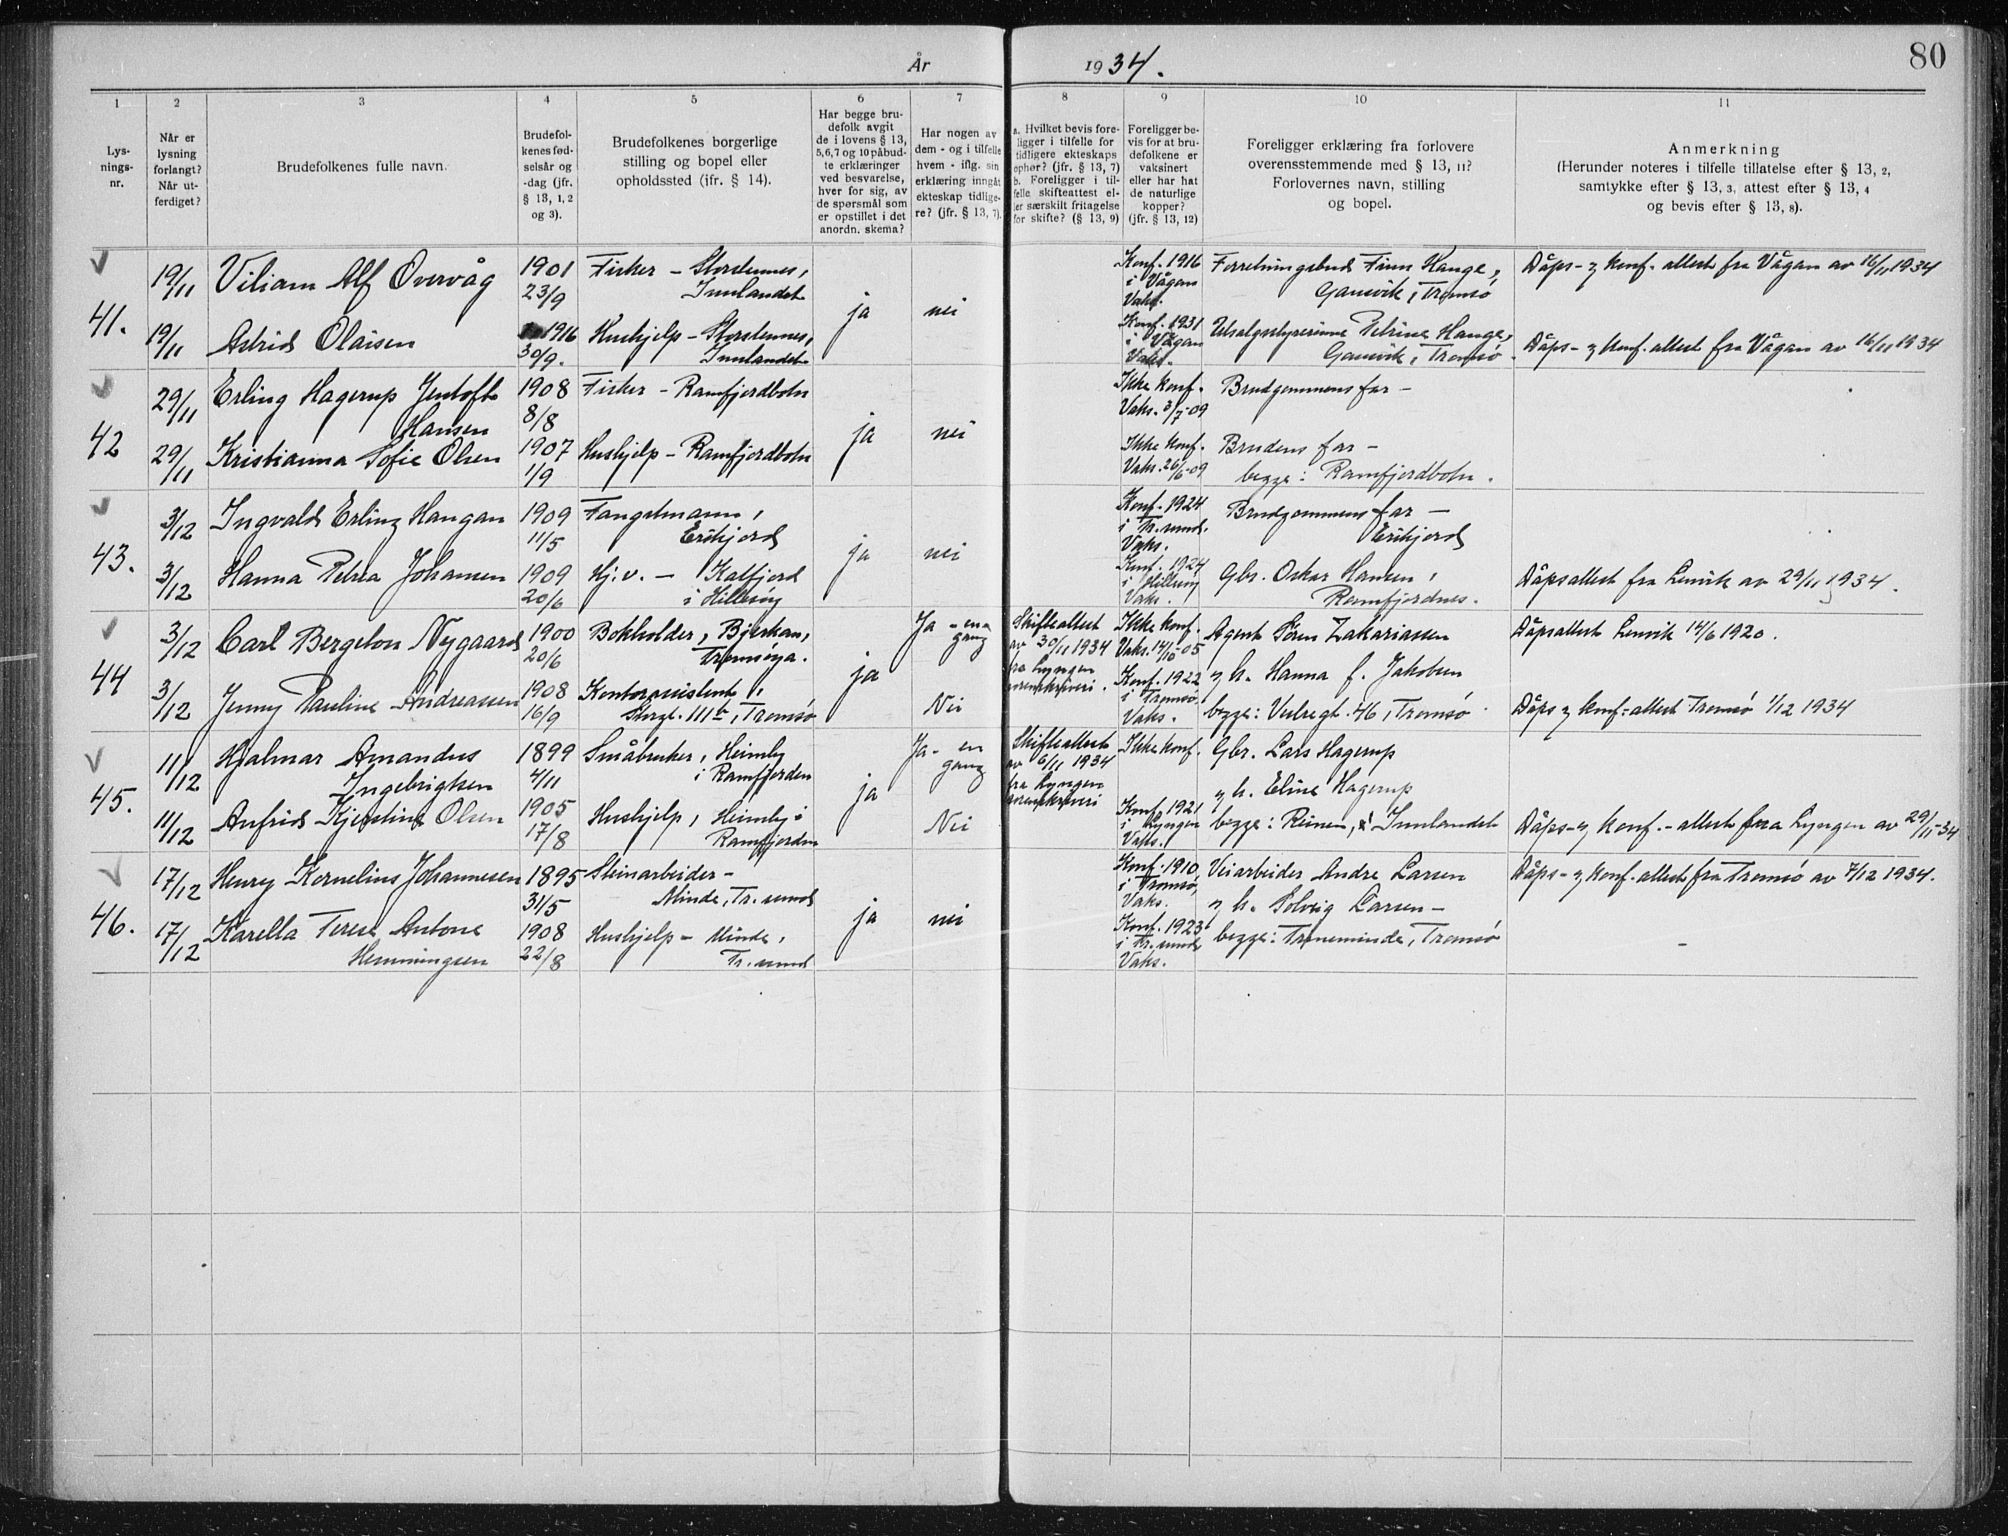 År 1934.
80
1
2
3
4
5
6
7
8
9
10
11
Lys-
nings-
nr.
Når er
lysning
forlangt?
Når ut-
ferdiget?
Brudefolkenes fulle navn.
Brudefol-
kenes fød-
selsår og
-dag (jfr.
§ 13, 1, 2
og 3).
Brudefolkenes borgerlige
stilling og bopel eller
opholdssted (ifr. § 14).
Har begge bru-
defolk avgit
de i lovens § 13,
5,6,7 og 10 påbud-
te erklæringer
ved besvarelse,
hver for sig, av
de spørsmål som
er opstillet i det
anordn. skema?
Har nogen av
dem - og i tilfelle
hvem - iflg. sin
erklæring inngåt
ekteskap tidlige-
re? (jfr. § 13, 7).
a. Hvilket bevis fore-
ligger i tilfelle for
tidligere ekteskaps
ophør? (jfr. § 13, 7)
b. Foreligger i til-
felle skifteattest el-
ler særskilt fritagelse
for skifte? (§ 13, 9)
Foreligger be-
vis for at bru-
defolkene er
vaksinert
eller har hat
de naturlige
kopper?
(jfr. § 13, 12)
Foreligger erklæring fra forlovere
overensstemmende med § 13, 11?
Forlovernes navn, stilling
og bopel.
Anmerkning
(Herunder noteres i tilfelle tillatelse efter § 13, 2,
samtykke efter § 13, 3, attest efter § 13, 4
og bevis efter § 13, 8).
41.
19/11
Viliam Alf Overvåg
1901
23/9
Fisker - Storstennes,
Innlandet
ja
nei
Konf. 1916
i Vågan
Vaks.
Forretningsbud Finn Hauge,
Gansvik, Tromsö
Dåps- og konf.-attest fra Vågan av 16/11 1934
19/11
Astrid Olaisen
1916
30/9.
Hushjelp - Storstennes,
Innlandet
Konf. 1931
i Vågan
Vaks.
Utsalgsstyrerinne Petrine Hauge,
Gansvik, Tromsö.
Dåps- og konf.-attest fra Vågan av 16/11 1934
42
29/11
Erling Hagerup Jentoft
Hansen
1908
8/8
Fisker - Ramfjordbotn
ja
nei
Ikke konf.
Vaks. 3/7-09
Brudgommens far -
29/11
Kristianna Sofie Olsen
1907
1/9
Hushjelp - Ramfjordbotn
Ikke konf.
Vaks. 26/6-09
Brudens far -
begge: Ramfjordbotn.
43.
3/12
Ingvald Erling Hangan
1909
11/5
Fangstmann,
Ersfjord
ja
nei
Konf. 1924
i Tr.sund.
Vaks.
Brudgommens far -
Ersfjord
3/12
Hanna Petrea Johansen
1909
20/6
Hj.v. - Kalfjord
i Hillesöy
Konf. 1924
i Hillesöy
Vaks.
Gbr. Oskar Hansen,
Ramfjordnes.
Dåpsattest fra Lenvik av 29/11 1934.
44
3/12
Carl Bergeton Nygaard
1900
20/6
Bokholder, Bjerkan,
Tromsøya.
ja
Ja - en
gang
Skifteattest
av 30/11 1934
fra Lyngen
sorenskriveri.
Ikke konf.
Vaks. 14/10-05
Agent Sören Zakariassen
Dåpsattest Lenvik 14/6 1920.
og h. Hanna f. Jakobsen
3/12
Jenny Pauline Andreassen
1908
16/9
Kontorassistent,
Storgt. 111b, Tromsø
Nei
Konf. 1922
i Tromsø.
Vaks.
begge: Vestregt. 46, Tromsö
Dåps og konf.-attest Tromsö 1/12 1934
45.
11/12
Hjalmar Amandus
Ingebrigtsen
1899
4/11
Småbruker, Heimly
i Ramfjorden
ja
Ja - en
gang
Skifteattest
av 6/11 1934
fra Lyngen
sorenskriveri
Ikke konf.
Gbr. Lars Hagerup
og h. Eline Hagerup
11/12
Anfrid Kjerstine Olsen
1905
17/8
Hushjelp, Heimly i
Ramfjorden
Nei
Konf. 1921
i Lyngen
Vaks.
begge: Reinen, Innlandet
Dåps- og konf.-attest fra Lyngen av 29/11-34
46.
17/12
Henry Kornelius Johannesen
1895
31/5
Steinarbeider -
Minde, Tr.sund
ja
nei
Konf. 1910,
i Tromsø,
Vaks.
Veiarbeider Andre Larsen
Dåps- og konf.-attest fra Tromsö av 7/12 1934.
og h. Solveig Larsen -
17/12
Karella Terese Antone
Hemmingsen
1908
22/8
Hushjelp - Minde,
Tr.sund
Konf. 1923
i Tr.sund
Vaks.
begge: Troneminde, Tromsö
-